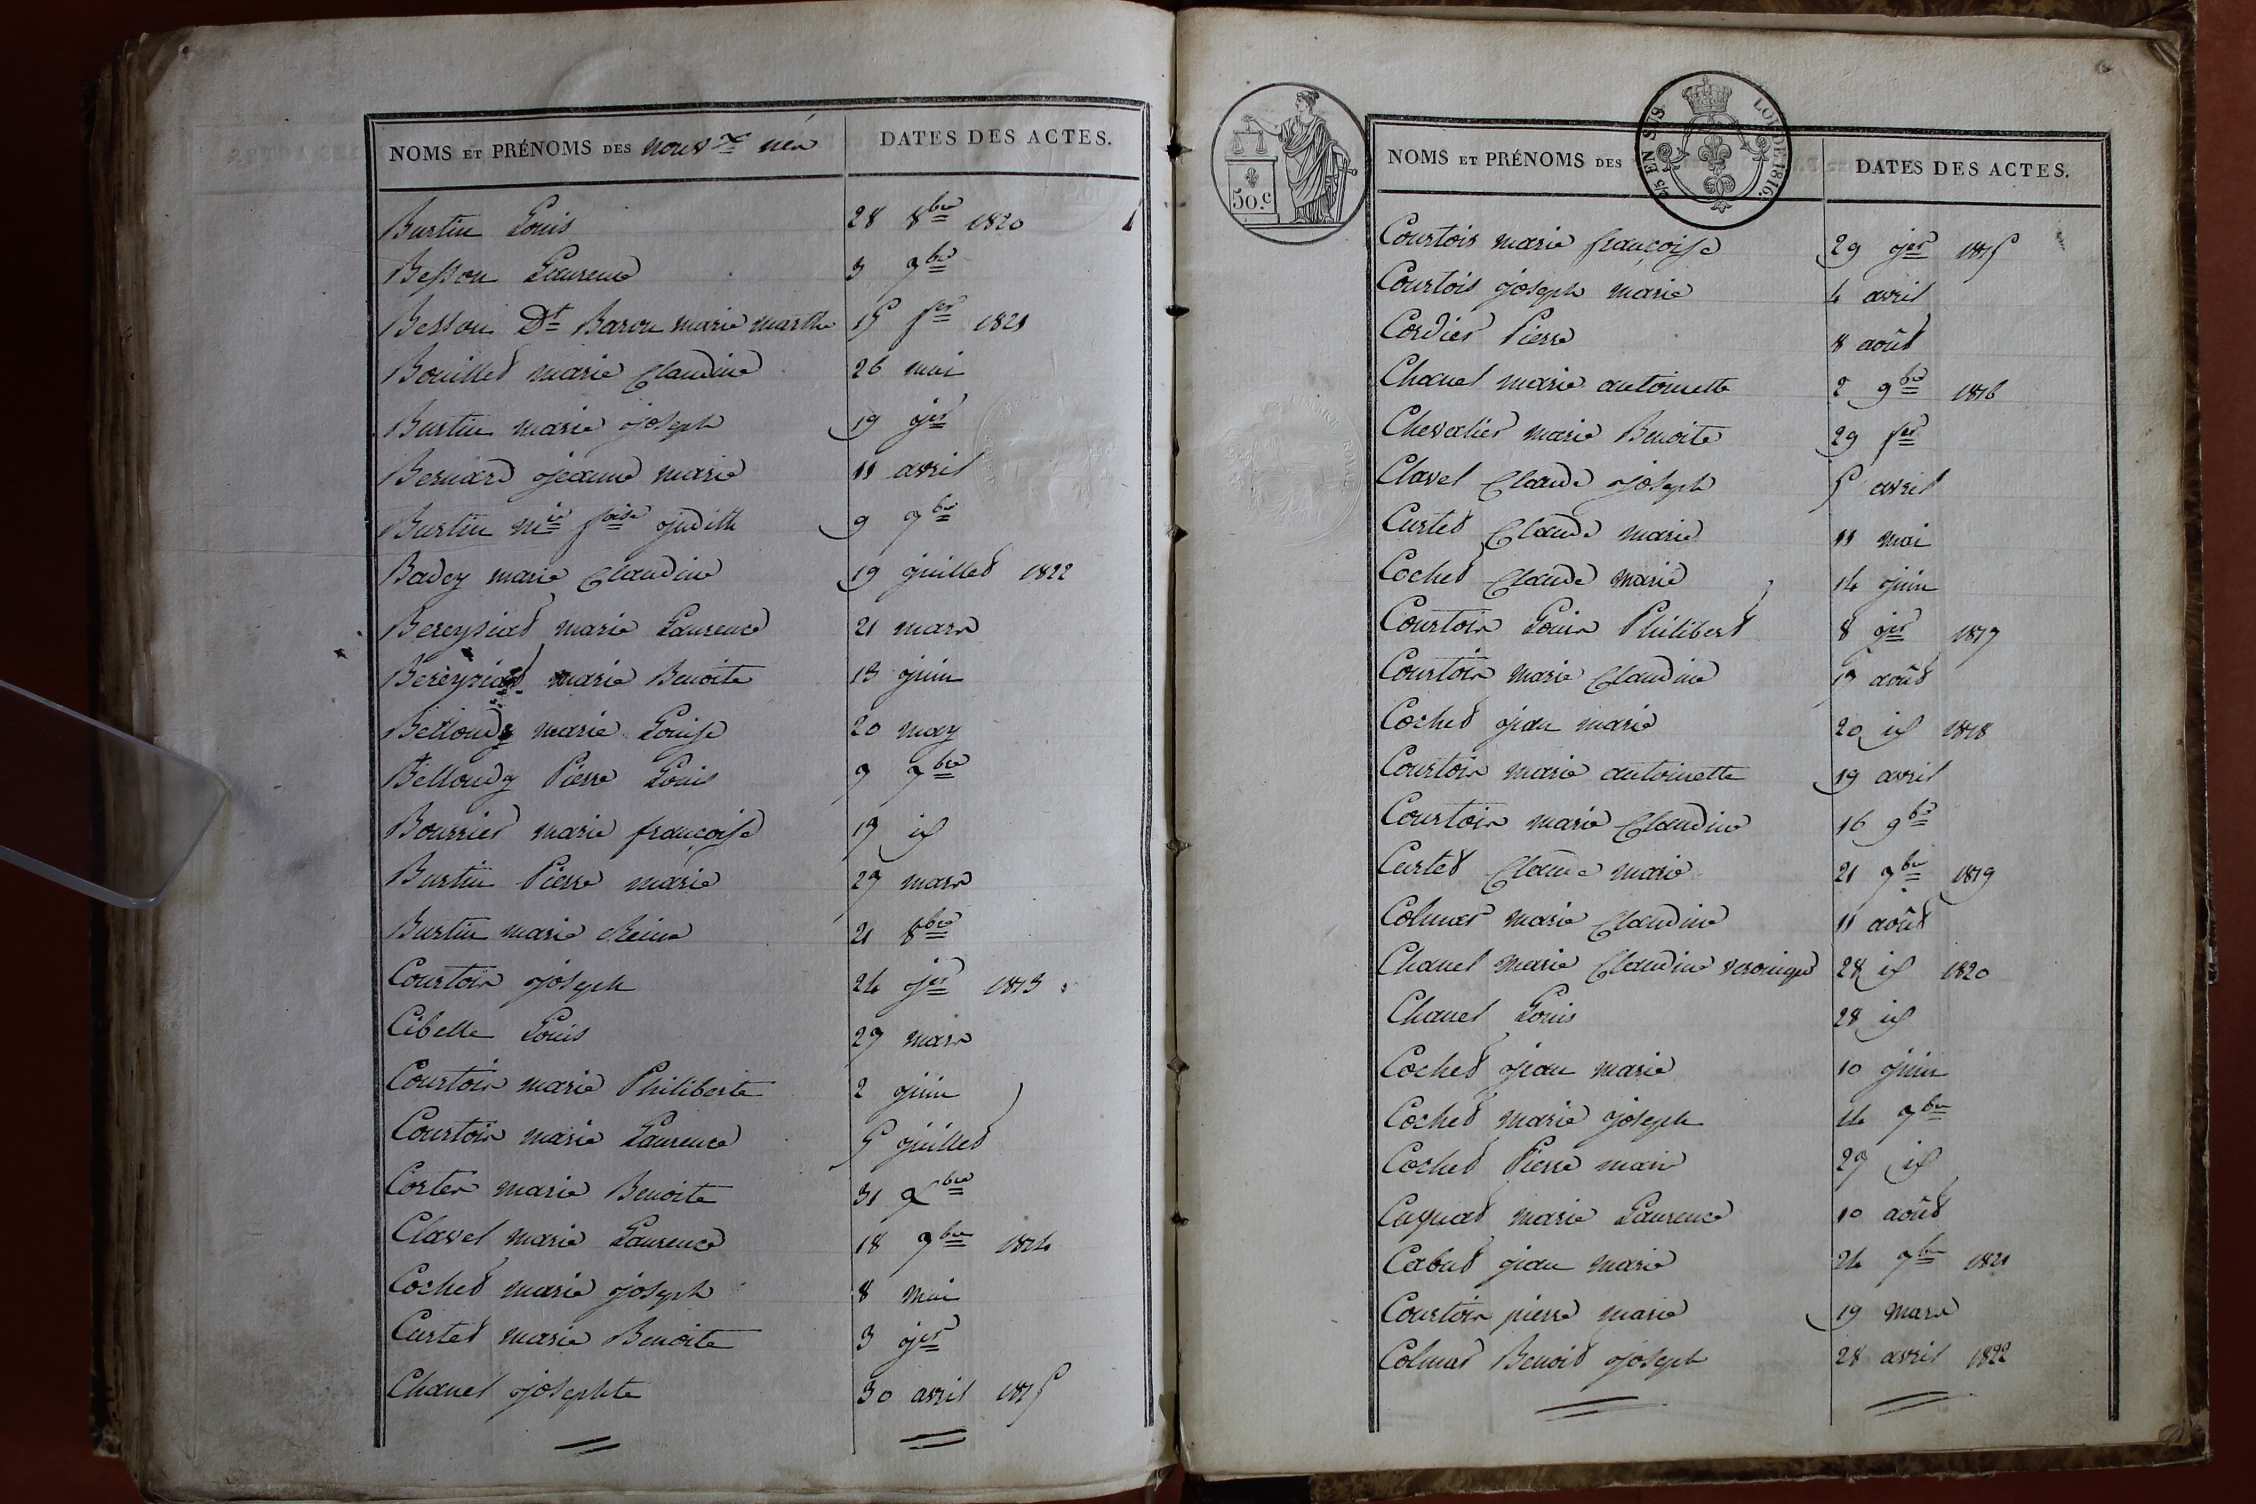 NOMS ET PRÉNOMS DES nouv.x nés DATES DES ACTES.
Burtin Louis 28 8bre 1820
Besson Laurence 3 9bre
Besson Dt Baron marie marthe 15 fer 1821
Bouillet marie Claudine 26 mai
Burtin marie joseph 19 jer
Bernard jeanne marie 11 avril
Burtin mie foise judith 9 7bre
Badey marie Claudine 19 juillet 1822
Bereyziat marie Laurence 21 mars
Bereyziat marie Benoite 13 juin
Belloudy marie Louise 20 may
Belloudy Pierre Louis 9 7bre
Bourrier marie françoise 17 id
Burtin Pierre marie 27 mars
Burtin marie Reine 21 8bre
Courtois joseph 24 jer 1813
Cibelle Louis 27 mars
Courtois marie Philiberte 2 juin
Courtois marie Laurence 5 juillet
Corter marie Benoite 31 xbre
Clavel marie Laurence 18 7bre 1814
Cochet marie joseph 8 mai
Curtet marie Benoite 3 jer
Chanel josephte 30 avril 1815
50.c
45 EN SUS LOI DE 1816.
NOMS ET PRÉNOMS DES DATES DES ACTES.
Courtois marie françoise 29 jer 1815
Courtois joseph marie 4 avril
Cordier Pierre 8 août
Chanel marie antoinette 2 9bre 1816
Chevalier marie Benoite 29 fer
Clavel Claude joseph 5 avril
Curtet Claude marie 11 mai
Cochet Claude marie 14 juin
Courtois Louis Philibert 8 jer 1817
Courtois marie Claudine 17 août
Cochet jean marie 20 id 1818
Courtois marie antoinette 19 avril
Courtois marie Claudine 16 9bre
Curtet Claude marie 21 7bre 1819
Colmar marie Claudine 11 août
Chanel marie Claudine veronique 28 id 1820
Chanel Louis 28 id
Cochet jean marie 10 juin
Cochet marie joseph 14 7bre
Cochet Pierre marie 27 id
Cuquat marie Laurence 10 août
Cabut jean marie 24 7bre 1821
Courtois pierre marie 19 mars
Colmar Benoit joseph 28 avril 1822